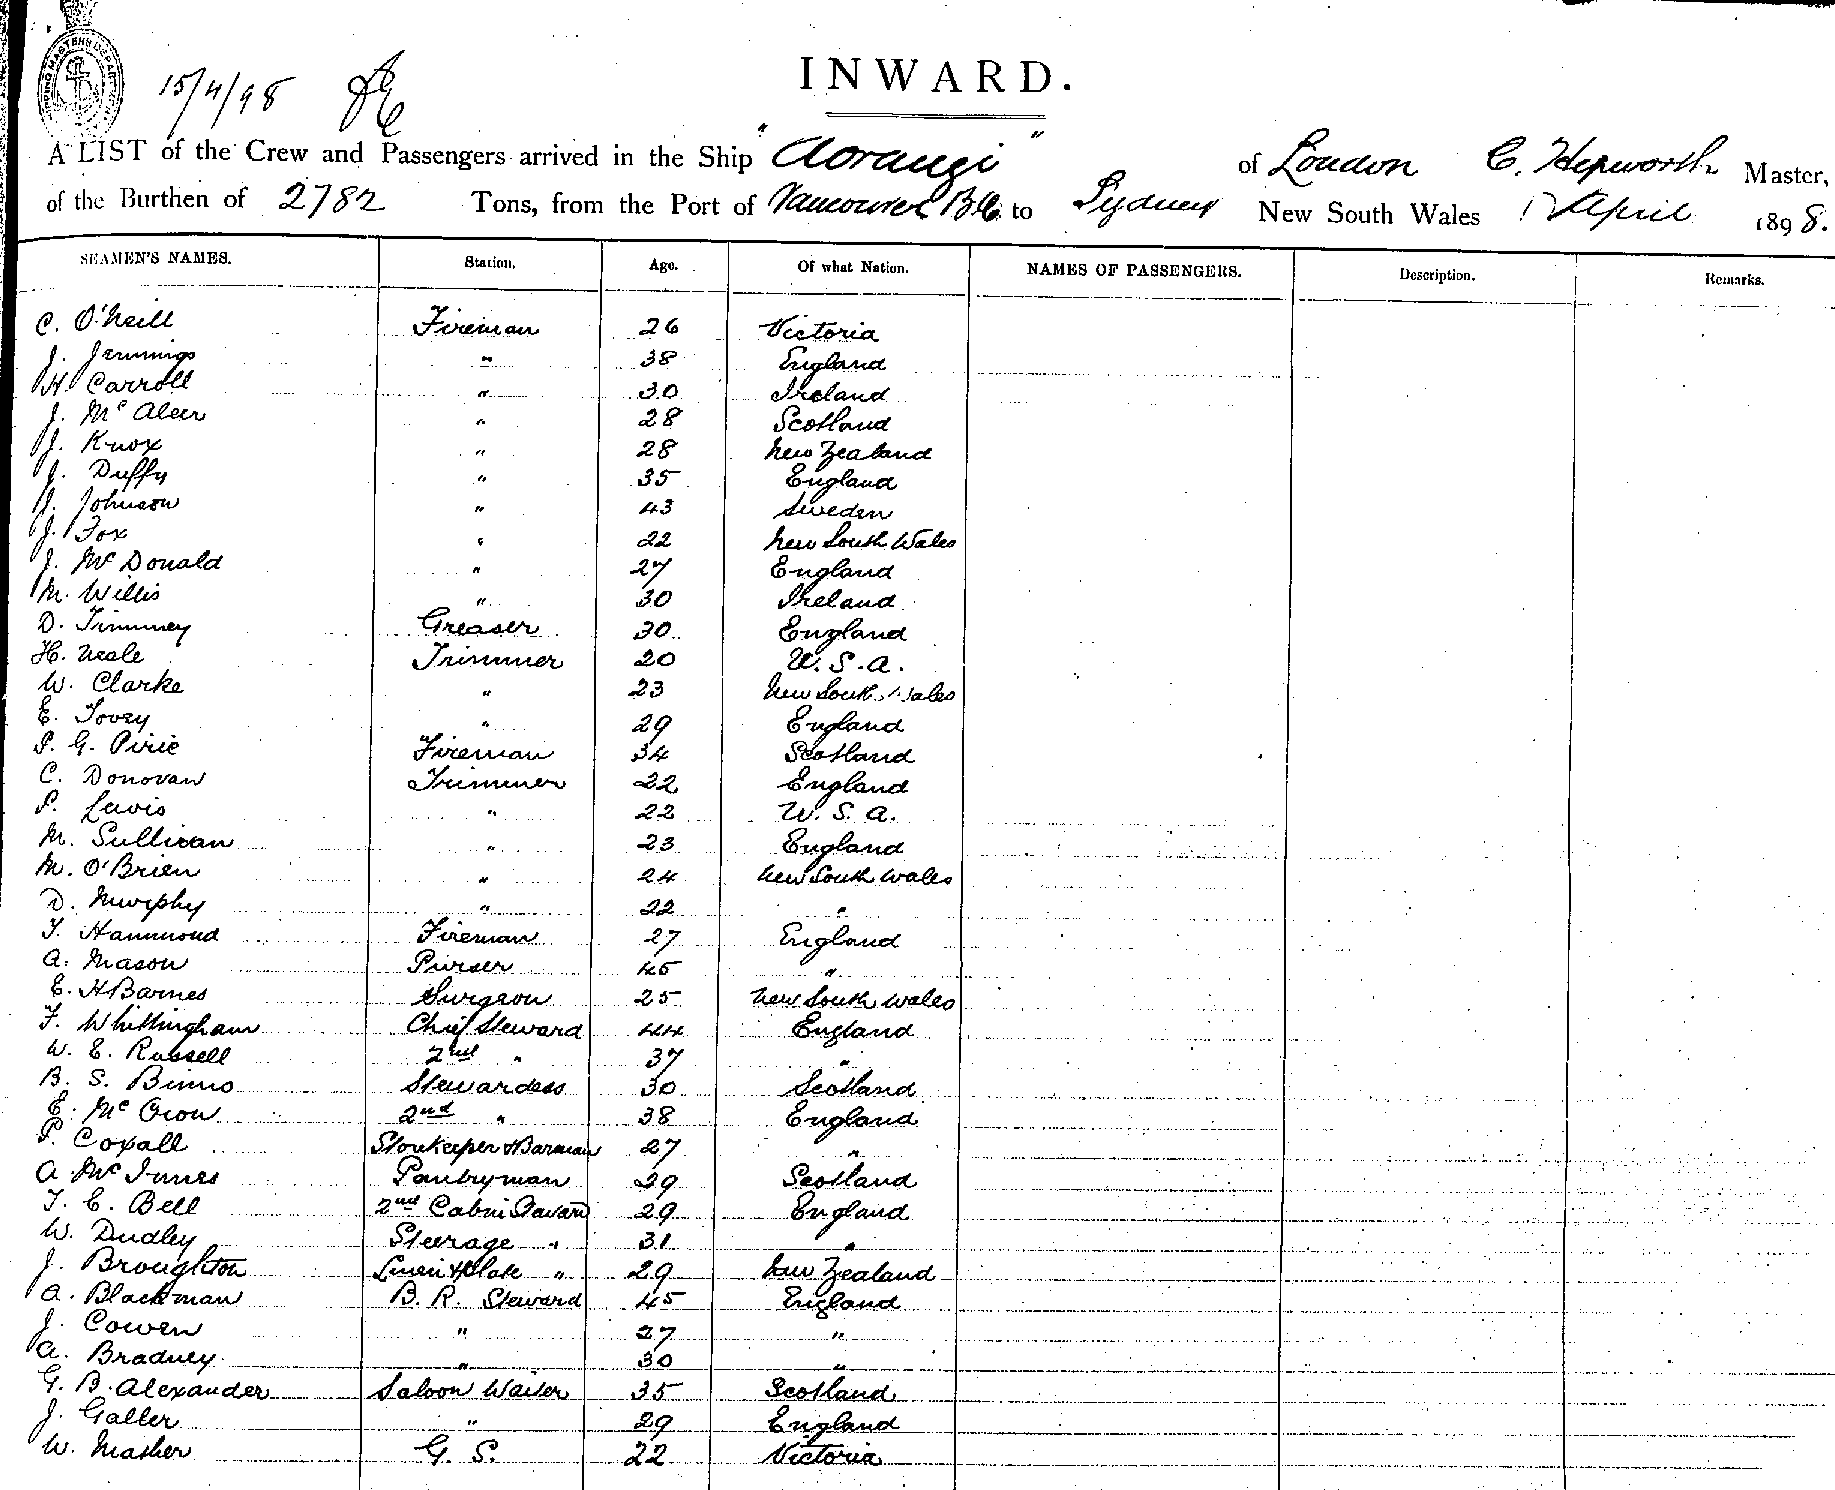 15/4/98
INWARD.
A LIST of the Crew and Passengers arrived in the Ship "Aorangi" of London C. Hepworth Master,
of the Burthen of 2782 Tons, from the Port of Vancouver B.C. to Sydney New South Wales April 1898.
SEAMEN'S NAMES. Station. Age. Of what Nation. NAMES OF PASSENGERS. Description. Remarks.
C. O'Neill Fireman 26 Victoria
J. Jennings " 38 England
H Carroll " 30 Ireland
J. McAleer " 28 Scotland
J. Knox " 28 New Zealand
J. Duffy " 35 England
J. Johnson " 43 Sweden
J. Fox " 22 New South Wales
J. McDonald " 27 England
M. Willis " 30 Ireland
D. Timmey Greaser 30 England
H. Neale Trimmer 20 U.S.A.
W. Clarke " 23 New South Wales
E. Tovey " 29 England
P. G. Pirie Fireman 34 Scotland
C. Donovan Trimmer 22 England
P. Lewis " 22 U.S.A.
M. Sullivan " 23 England
M. O'Brien " 24 New South Wales
D. Murphy " 22 "
T. Hammond Fireman 27 England
A. Mason Purser 45 "
E. H Barnes Surgeon 25 New South Wales
F. Whittingham Chief Steward 44 England
W. E. Russell 2nd " 37 "
B. S. Binns Stewardess 30 Scotland
E. Mc 2nd " 38 England
P. Coxall Storekeeper & Barman 27 "
A. McInnes Pantryman 29 Scotland
T. C. Bell 2nd Cabin Steward 29 England
W. Dudley Steerage " 31 "
J. Broughton Linen & Plate " 29 New Zealand
A. Blackman B. R. Steward 45 England
J. Cowen " 27 "
A. Bradney " 30 "
G. B. Alexander Saloon Waiter 35 Scotland
J. Galler " 29 England
W. Masher G. S. 22 Victoria